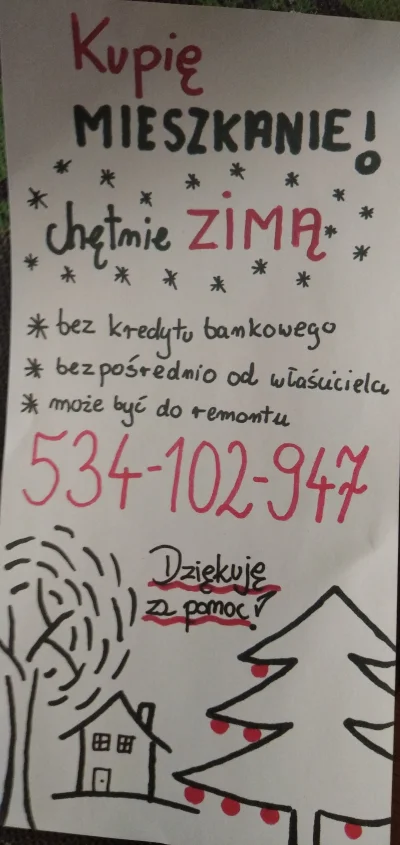 Kupię
MIESZKANIE!
chętnie ZIMĄ
* bez kredytu bankowego
* bezpośrednio od właściciela
* może być do remontu
534-102-947
Dziękuję
za pomoc!